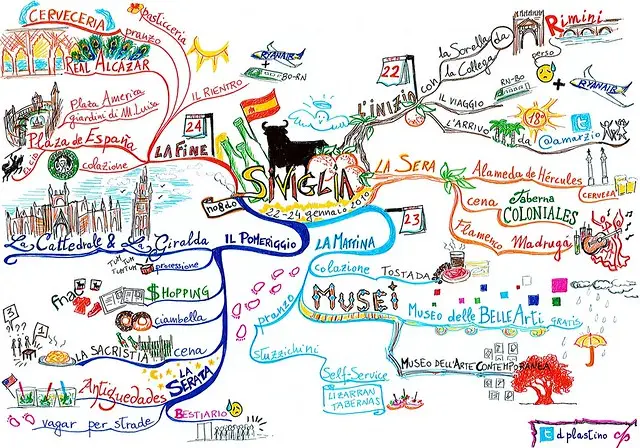 SIVIGLIA
22-24 gennaio 2010
no8do
L'inizio
22
con
la Sorella
la Collega
da
Rimini
perso
IL VIAGGIO
RN-BO
+
RYANAIR
L'ARRIVO
da
18°
@amarzio
LA SERA
Alameda de Hércules
CERVEZA
cena
Taberna
COLONIALES
Flamenco
Madrugà
23
LA MATTINA
colazione
TOSTADA
MUSEI
Museo delle BELLE Arti
GRATIS
MUSEO DELL'ARTE CONTEMPORANEA
pranzo
stuzzichini
Self-Service
LIZARRAN
TABERNAS
IL POMERIGGIO
La Cattedrale & La Giralda
TUM TUM
TUM TUM
processione
fnac
$HOPPING
ciambella
LA SERATA
cena
LA SACRISTIA
3
1
Antiguedades
BESTIARIO
vagar per strade
24
LA FINE
colazione
El Cid
Plaza de España
Plaza America
giardini di M. Luisa
REAL ALCAZAR
pranzo
CERVECERIA
Pasticceria
IL RIENTRO
RYANAIR
+
BO-RN
d plastino